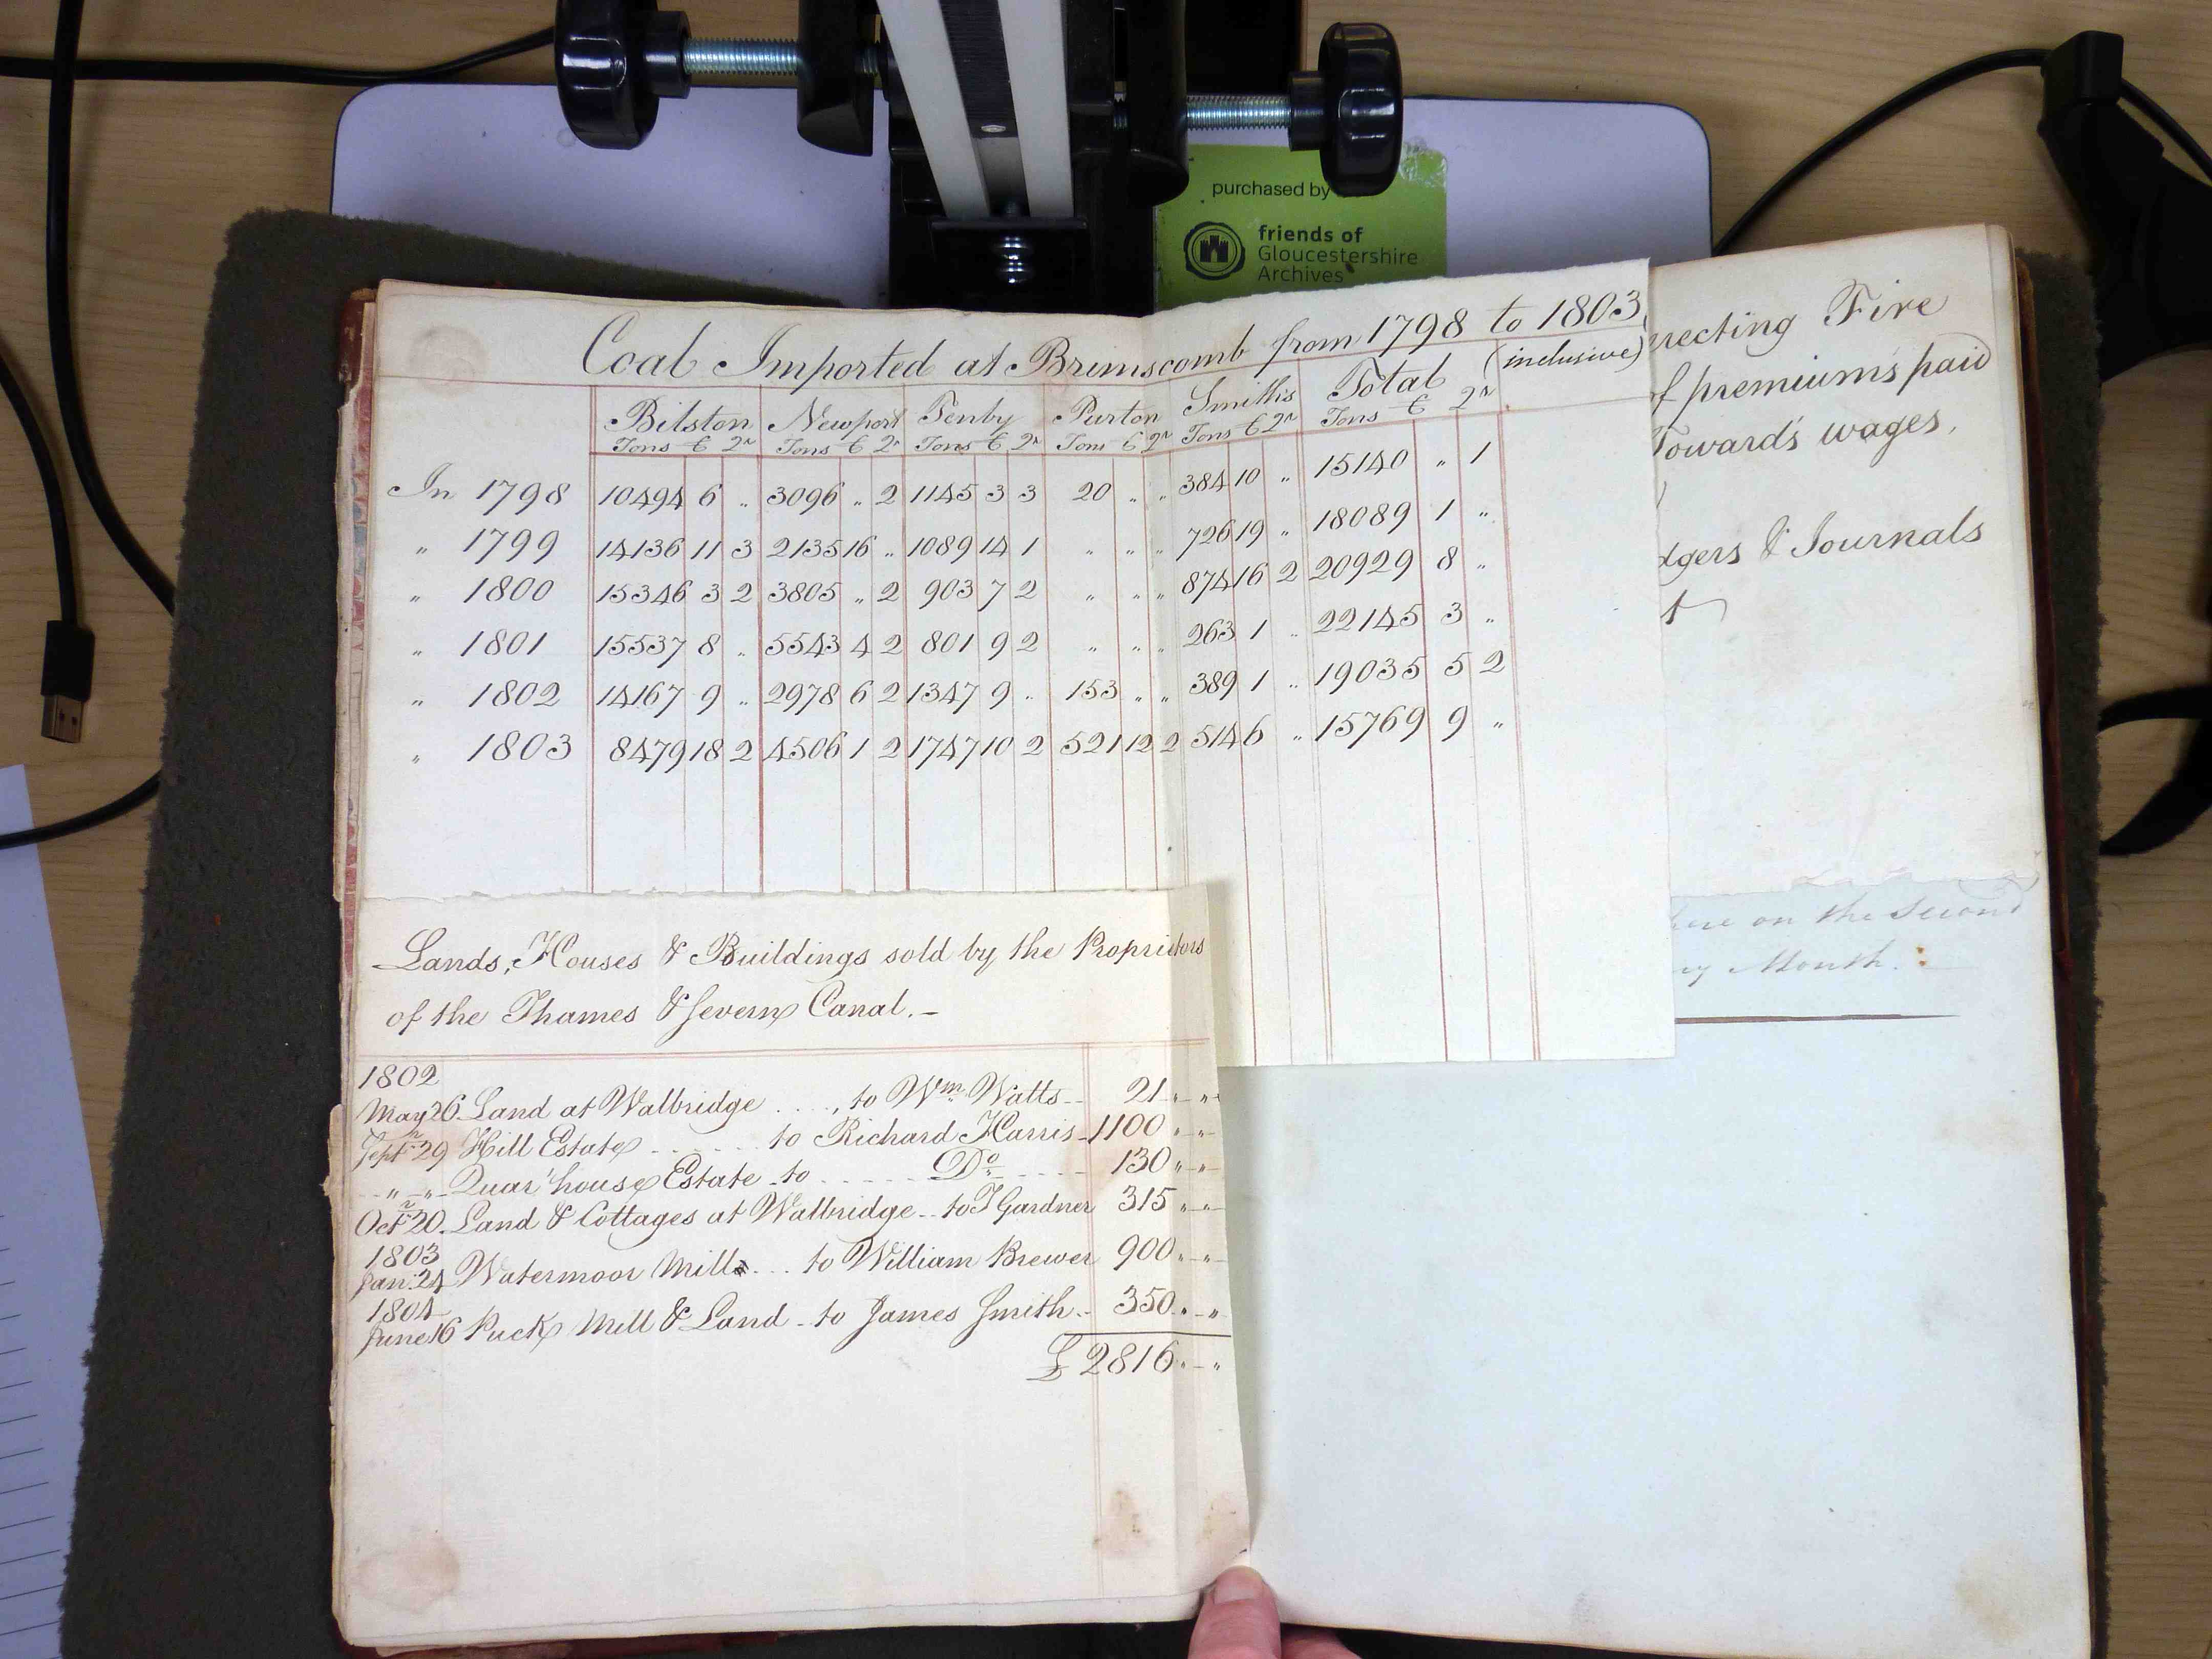 purchased by
friends of
Gloucestershire
Archives
Coal Imported at Brimscomb from 1798 to 1803
(inclusive)
Bilston Newport Tenby Purton Smith's Total
Tons C Qr Tons C Qr Tons C Qr Tons C Qr Tons C Qr Tons C Qr
In 1798 10494 6 " 3096 " 2 1145 3 3 20 " " 384 10 " 15140 " 1
" 1799 14136 11 3 2135 16 " 1089 14 1 " " " 726 19 " 18089 1 "
" 1800 15346 3 2 3805 " 2 903 7 2 " " " 874 16 2 20929 8 "
" 1801 15537 8 " 5543 4 2 801 9 2 " " " 263 1 " 22145 3 "
" 1802 14167 9 " 2978 6 2 1347 9 " 153 " " 389 1 " 19035 5 2
" 1803 8479 18 2 4506 1 2 1747 10 2 521 12 2 514 6 " 15769 9 "
Lands, Houses & Buildings sold by the Proprietors
of the Thames & Severn Canal.-
1802
May 26 Land at Walbridge ...., to Wm. Watts-- 21 " "
Septr 29 Hill Estate ....... to Richard Harris-1100 " "
" " Quar'house Estate to ...... Do .... 130 " "
Octr 20. Land & Cottages at Walbridge-- to T Gardner 315 " "
1803
Jan: 24 Watermoor Mill ... to William Brewer 900 " "
1804
June 16 Puck Mill & Land - to James Smith-- 350 " "
£ 2816 " "
ecting Fire
f premiums paid
Towards wages,
dgers & Journals
here on the Second
ry Month.